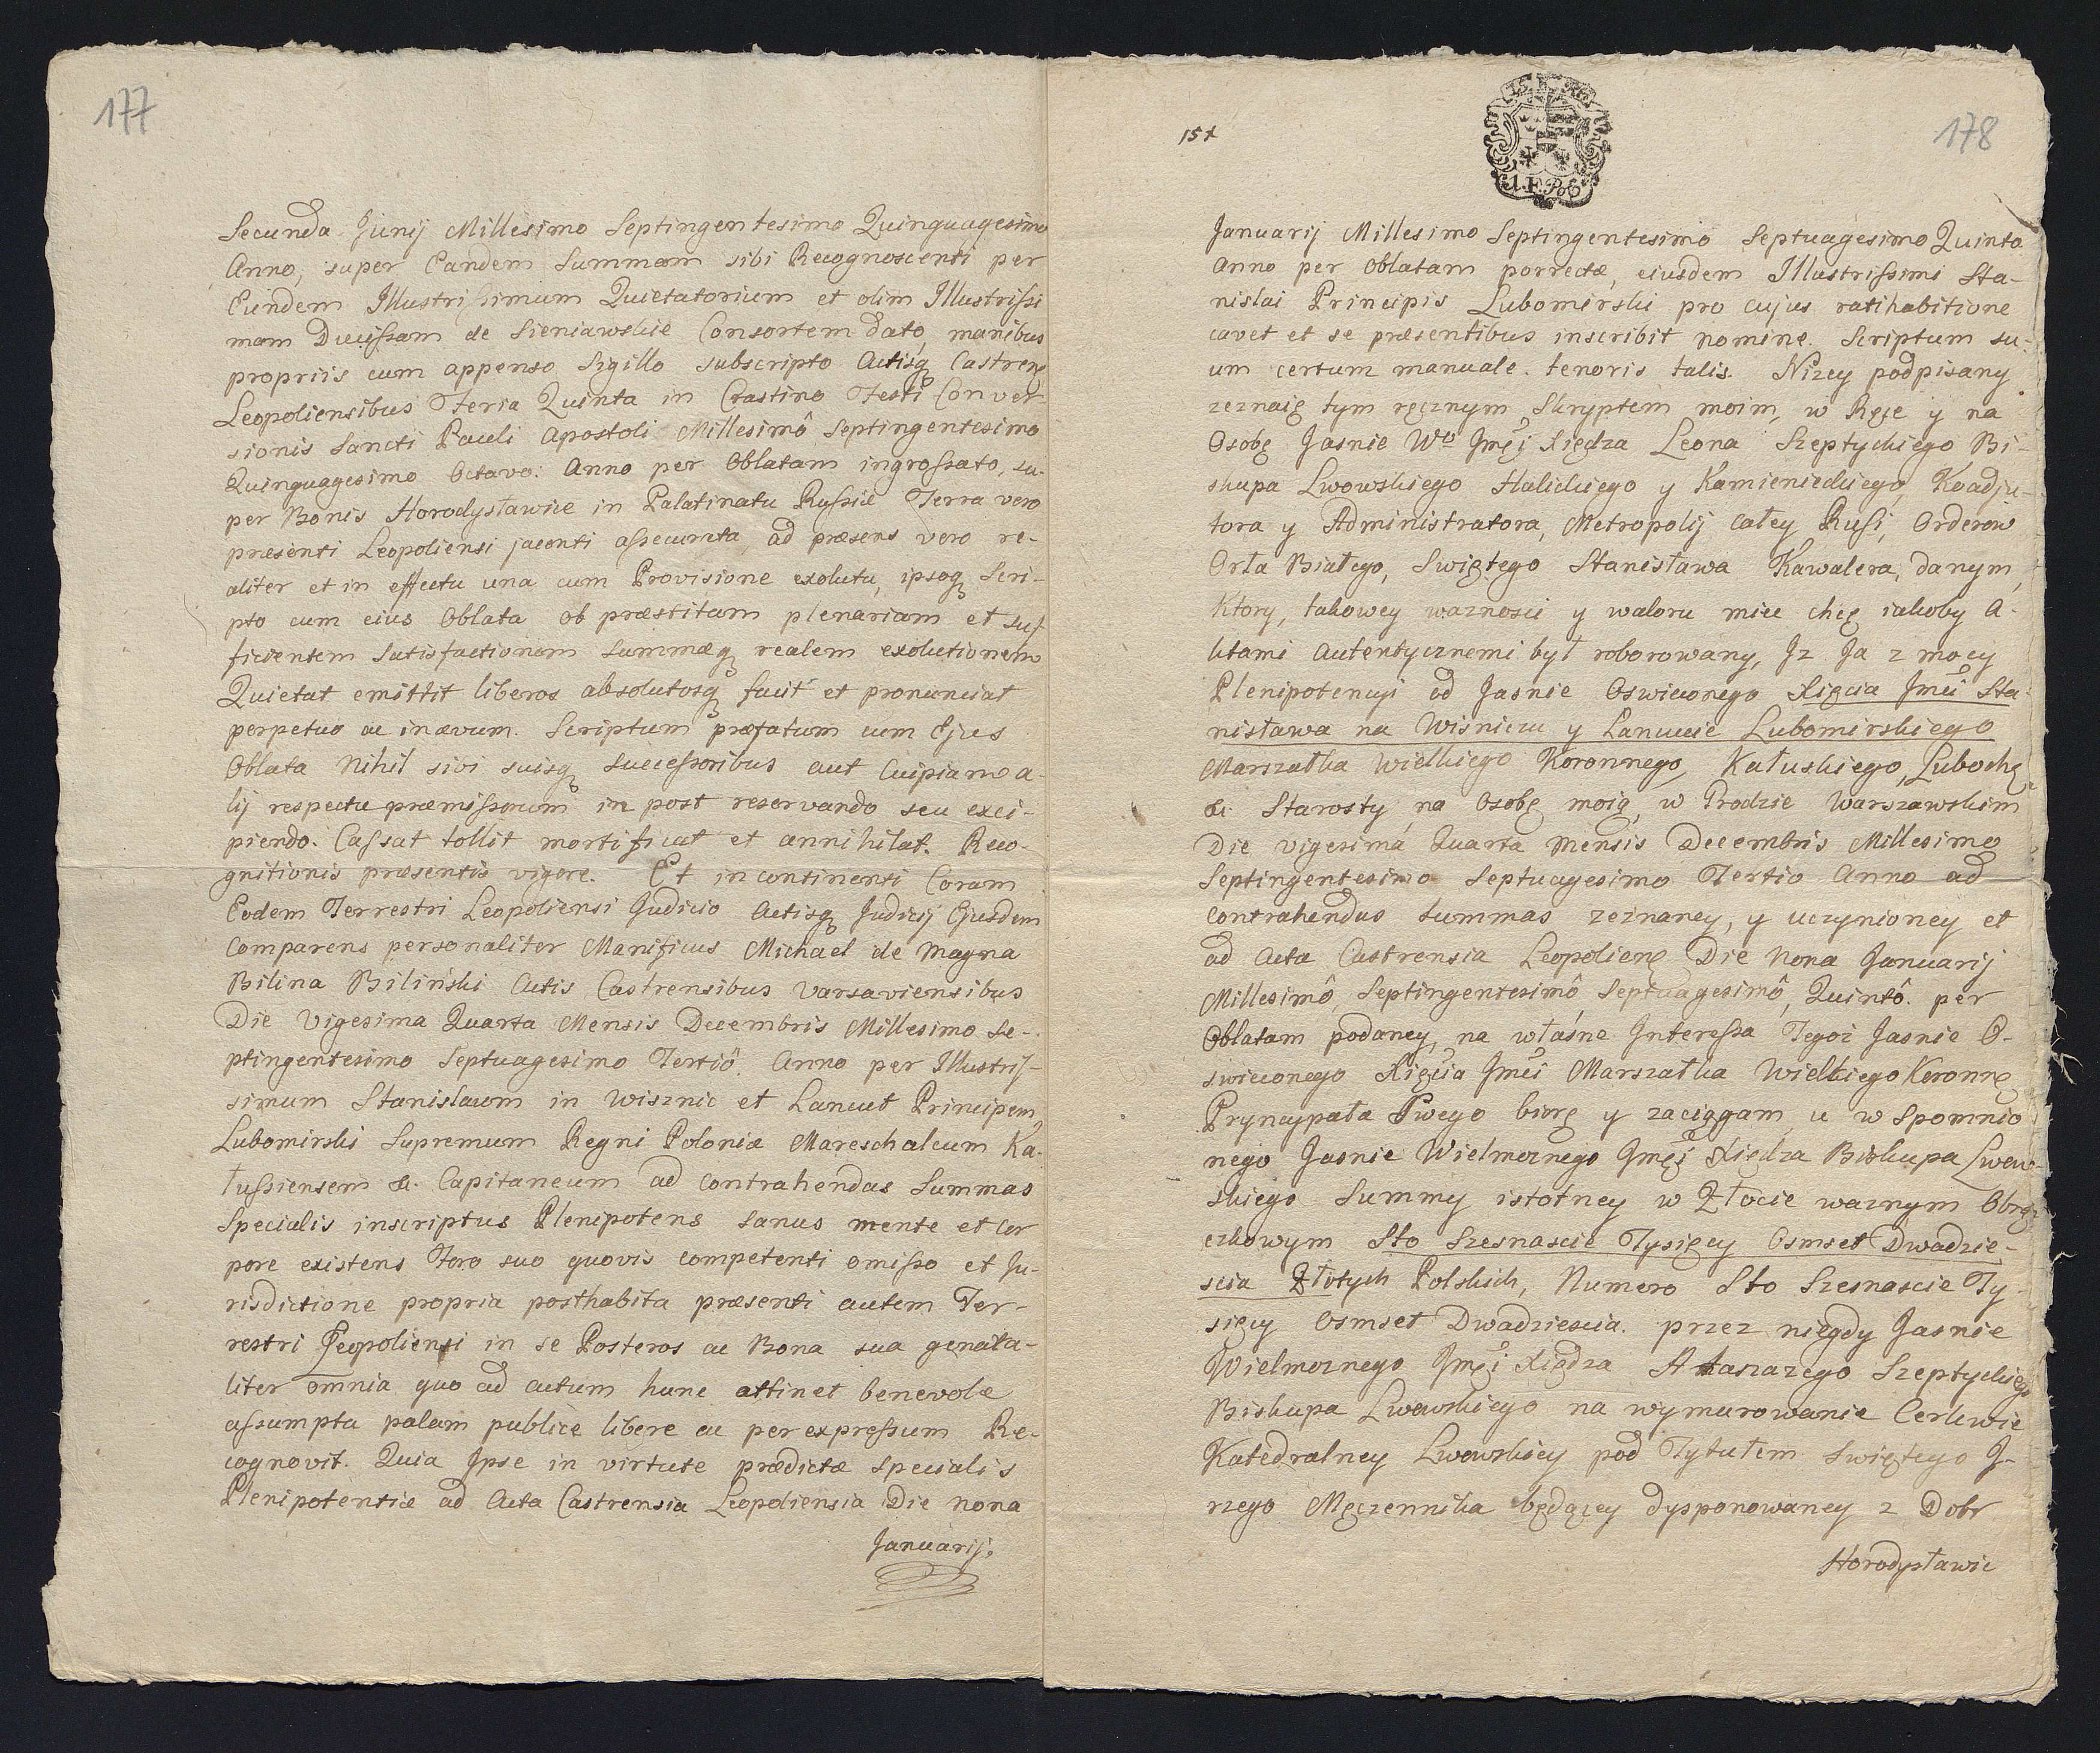 177
Secunda Junij Millesimo Septingentesimo Quinquagesimo
Anno, super Eandem Summam sibi Recognoscenti per
Eundem Illustrissimum Quietatorium et olim Illustrissi
mam Ducissam de Sieniawskie Consortem dato, manibus
propriis cum appenso Sigillo subscripto Actisq Castren
Leopoliensibus Feria Quinta in Crastino Festi Conver
sionis Sancti Pauli Apostoli Millesimô Septingentesimo
Quinquagesimo Octavo. Anno per Oblatam ingrossato, su-
per Bonis Horodysławice in Palatinatu Russiæ Terra vero
præsenti Leopoliensi jacenti assecurata, ad præsens vero re-
aliter et in effectu una cum Provisione exoluta, ipsoq Scri-
pto cum eius Oblata ob præstitam plenariam et suf
ficientem Satisfactionem Summæq realem exolutionem
Quietat emittit liberos absolutosq facit et pronunciat
perpetuo ac inævum. Scriptum præfatum cum Ejus
Oblata Nihil sibi suisq successoribus aut Cuipiam a-
lij respectu præmissorum in post reservando seu exci-
piendo. Cassat tollit mortificat et annihilat. Reco-
gnitionis præsentis vigore. Et in continenti Coram
Eodem Terrestri Leopoliensi Judicio Actisq Judicij Ejusdem
Comparens personaliter Manificus Michael de Magna
Bilina Biliński Actis Castrensibus Varsaviensibus
Die Vigesima Quarta Mensis Decembris Millesimo Se-
ptingentesimo Septuagesimo Tertiô. Anno per Illustris-
simum Stanislaum in Wisznic et Łancut Principem
Lubomirski Supremum Regni Poloniæ Mareschalcum Ka-
łussiensem &c. Capitaneum ad contrahendas Summas
Specialis inscriptus Plenipotens sanus mente et Cor
pore existens Foro suo quovis competenti omisso et Ju-
risdictione propria posthabita præsenti autem Ter-
restri Leopoliensi in se Posteros ac Bona sua genera-
liter omnia quo ad actum hunc attinet benevole
assumpta palam publice libere ac per expressum Re-
cognovit. Quia Ipse in virtute prædictæ specialis
Plenipotentiæ ad Acta Castrensia Leopoliensia Die nona
Januarij.
15
178
J.F.
Januarij Millesimo Septingentesimo Septuagesimo Quinto
Anno per Oblatam porrectæ, eiusdem Illustrissimi Sta-
nislai Principis Lubomirski pro cujus ratihabitione
cavet et se præsentibus inscribit nomine. Scriptum su-
um certum manuale. tenoris talis. Nizey podpisany
zeznaię tym ręcznym Skryptem moim, w Ręce y na
Osobę Jasnie Wo Jmęi Xiędza Leona Szeptyckiego Bi-
skupa Lwowskiego Halickiego y Kamienieckiego, Koadju-
tora y Administratora, Metropolij całey Rusi, Orderow
Orła Białego, Swiętego Stanisława Kawalera, danym,
Ktory, takowey waznosci y waloru miec chcę iakoby A-
ktami Autentycznemi był roborowany, Iz Ja z mocy
Plenipotencyi od Jasnie Oswieconego Xięcia Jmci Sta-
nisława na Wisniczu y Łancucie Lubomirskiego
Marszałka Wielkiego Koronnego, Kałuskiego, Lubochę
&c Starosty, na Osobę moię, w Grodzie Warszawskim
Die vigesimá Quarta Mensis Decembris Millesimo
Septingentesimo Septuagesimo Tertio Anno ad
contrahendas Summas zeznaney, y uczynioney et
ad Acta Castrensia Leopolien Die Nona Januarij
Millesimô, Septingentesimô Septuagesimô, Quintô. per
Oblatam podaney, na własne Interessa Tegoż Jasnie O-
swieconego Xięcia Jmci Marszałka Wielkiego Koronne
Pryncypała Swego biorę y zaciągam, u w spomnio
nego Jasnie Wielmoznego Jmęi Xiędza Biskupa Lwow-
skiego Summy istotney w Złocie waznym Obrą
czkowym Sto Szesnascie Tysięcy Osmset Dwadzie-
scia Złotych Polskich, Numero Sto Szesnascie Ty-
sięcy Osmset Dwadziescia. przez niegdy Jasnie
Wielmoznego Jmęi Xiędza Atanazego Szeptyckiego
Biskupa Lwowskiego na wymurowanie Cerkwie
Katedralney Lwowskiey pod Tytułem Swiętego J-
rzego Męczennika będącey dysponowaney z Dobr
Horodysławic